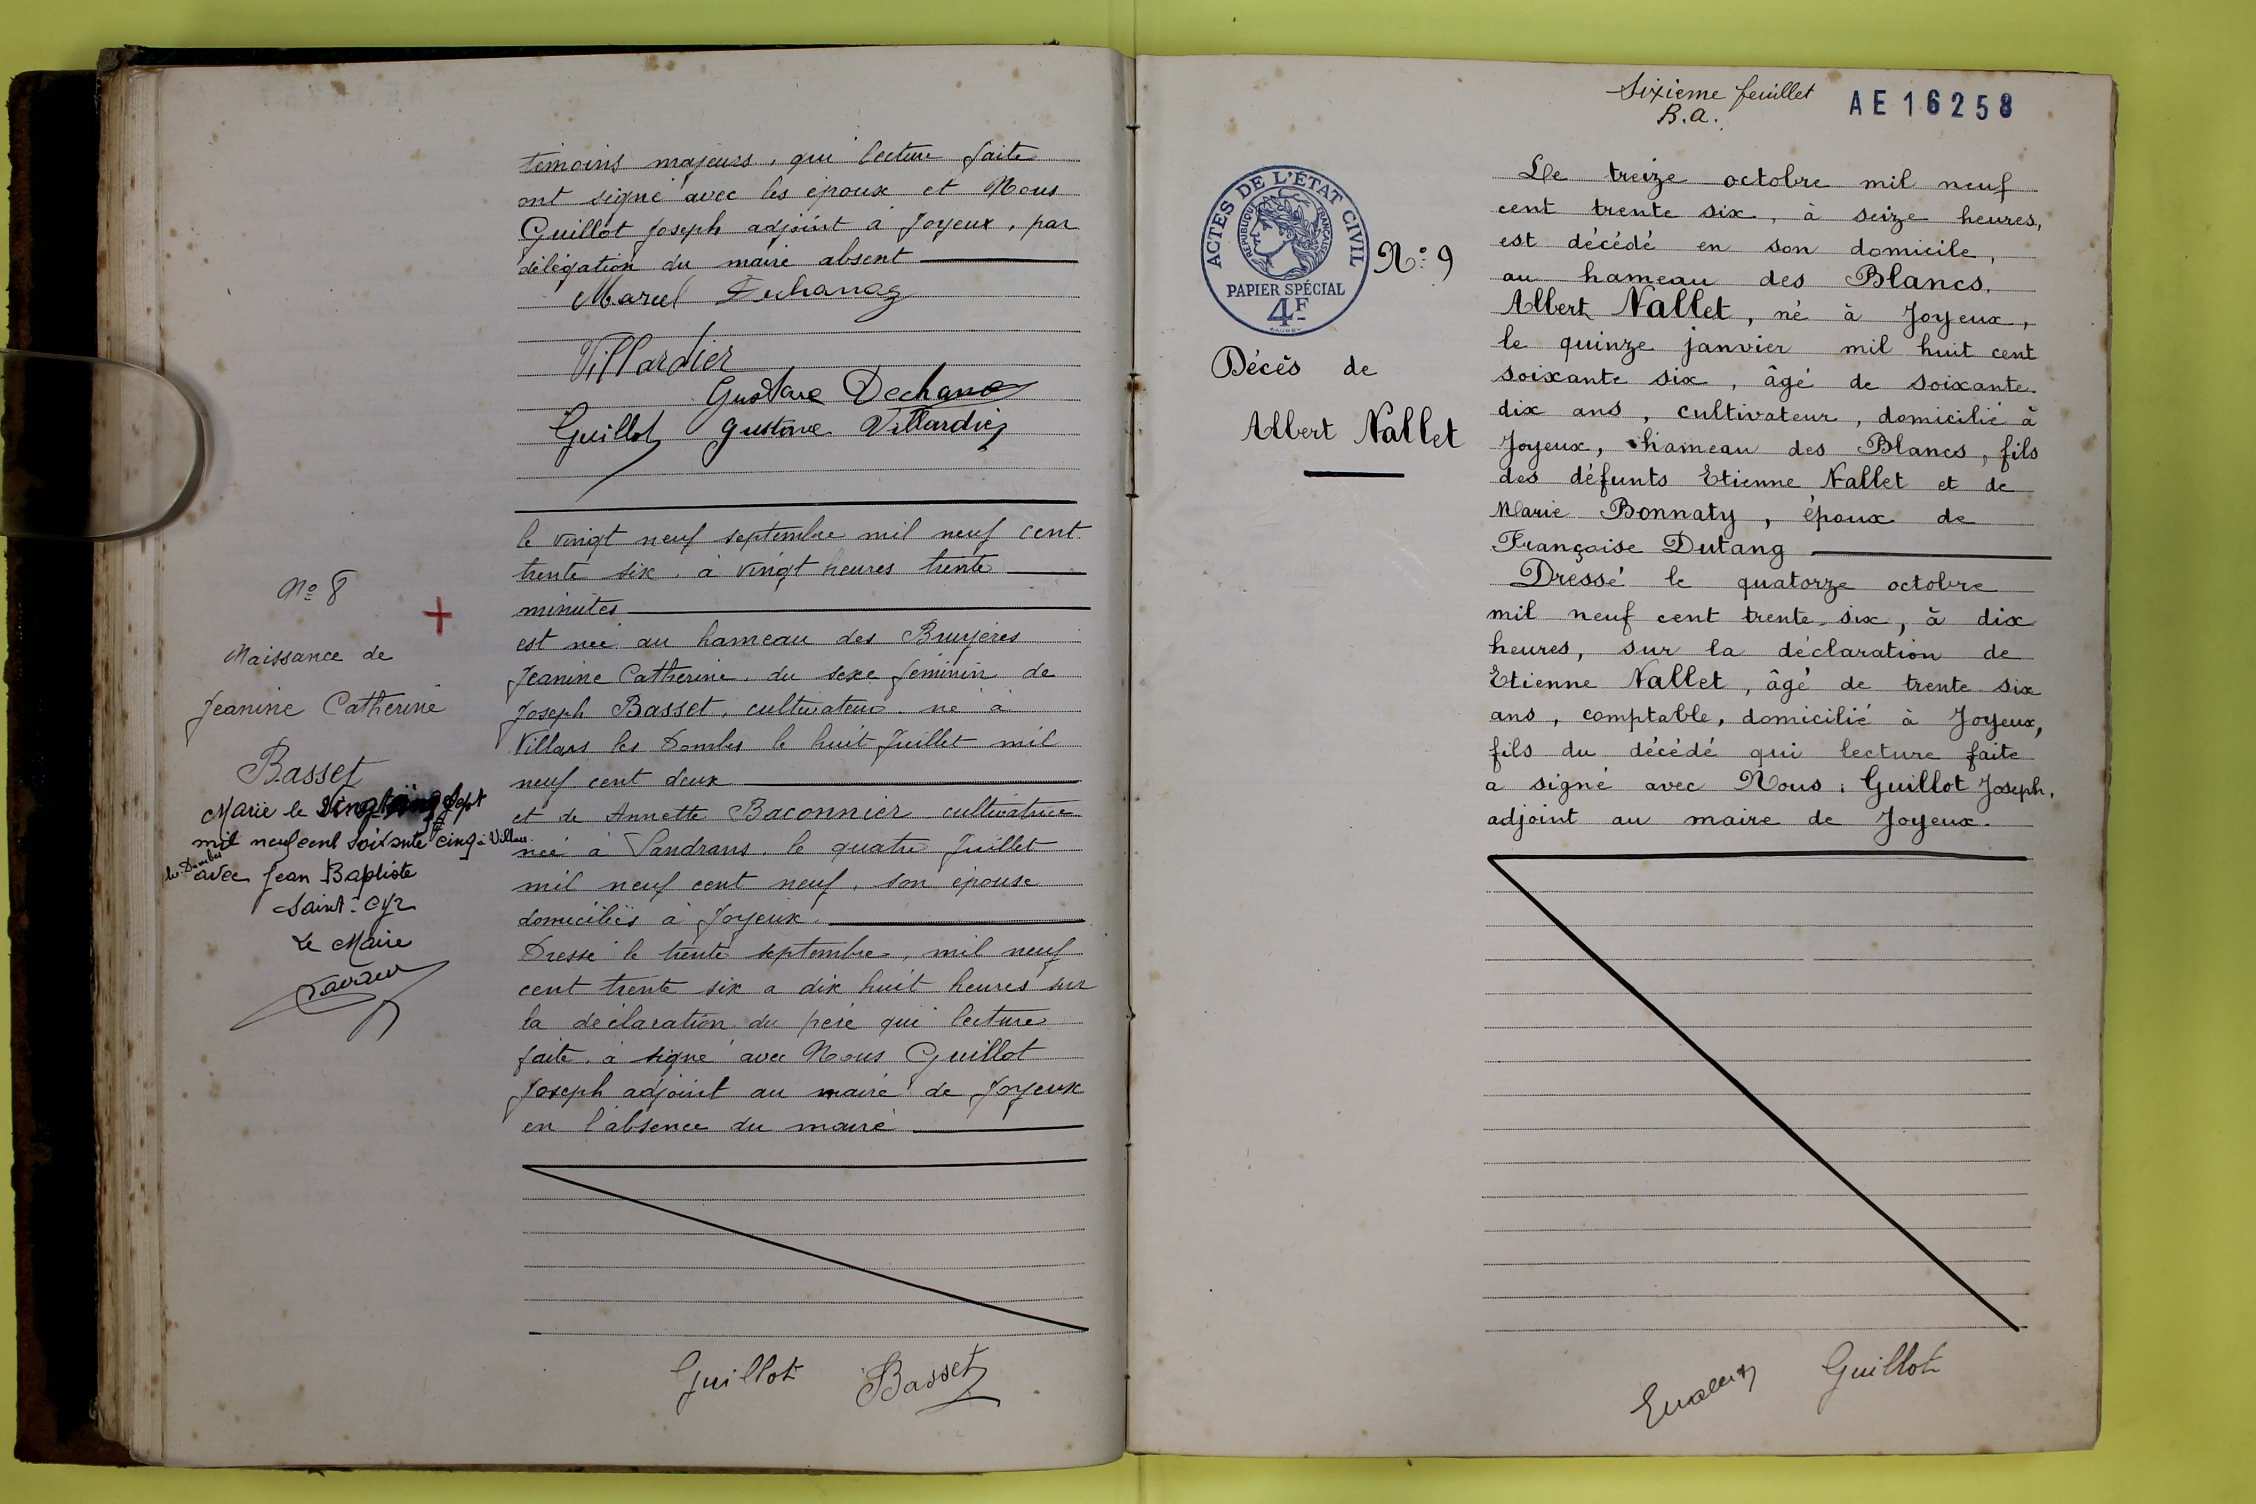 témoins majeurs, qui lecture faite
ont signé avec les époux et Nous
Guillot Joseph adjoint à Joyeux, par
délégation du maire absent
Marcel Dechanoz
Villardier
Gustave Dechanoz
Guillot Gustave Villardier
N° 8
Naissance de
Jeanine Catherine
Basset
Marie le sept
mil neuf cent soixante cinq à Villars
les Dombes
avec Jean Baptiste
Saint-Cyr
Le Maire
le vingt neuf septembre mil neuf cent
trente six, à vingt heures trente
minutes
est née au hameau des Bruyères
Jeanine Catherine, du sexe féminin de
Joseph Basset, cultivateur, né à
Villars les Dombes le huit Juillet mil
neuf cent deux
et de Annette Baconnier cultivatrice
née à Sandrans, le quatre Juillet
mil neuf cent neuf, son épouse
domiciliés à Joyeux.
Dressé le trente septembre, mil neuf
cent trente six a dix huit heures sur
la déclaration du père qui lecture
faite, a signé avec Nous Guillot
Joseph adjoint au maire de Joyeux
en l'absence du maire
Guillot Basset
Sixième feuillet
B.A.
AE 16258
ACTES DE L'ÉTAT CIVIL
RÉPUBLIQUE FRANÇAISE
PAPIER SPÉCIAL
4F
N° 9
Décès de
Albert Nallet
Le treize octobre mil neuf
cent trente six, à seize heures,
est décédé en son domicile,
au hameau des Blancs.
Albert Nallet, né à Joyeux,
le quinze janvier mil huit cent
soixante six, âgé de soixante
dix ans, cultivateur, domicilié à
Joyeux, hameau des Blancs, fils
des défunts Etienne Nallet et de
Marie Bonnaty, époux de
Françoise Dutang
Dressé le quatorze octobre
mil neuf cent trente-six, à dix
heures, sur la déclaration de
Etienne Nallet, âgé de trente six
ans, comptable, domicilié à Joyeux,
fils du décédé qui lecture faite
a signé avec Nous, Guillot Joseph,
adjoint au maire de Joyeux.
Guillot